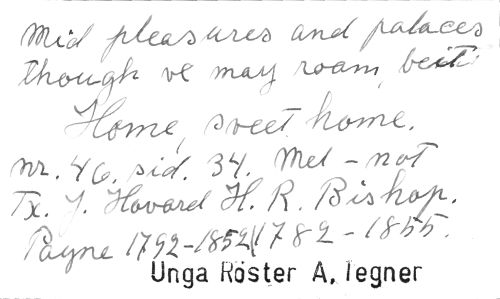 Mid pleasures and palaces
though ve may roam, beit
Home, sveet home.
nr. 46. sid. 34. Mel - not
Tx. J. Hovard H. R. Bishop.
Payne 1792-1852 1782 - 1855.
Unga Röster A. Tegner